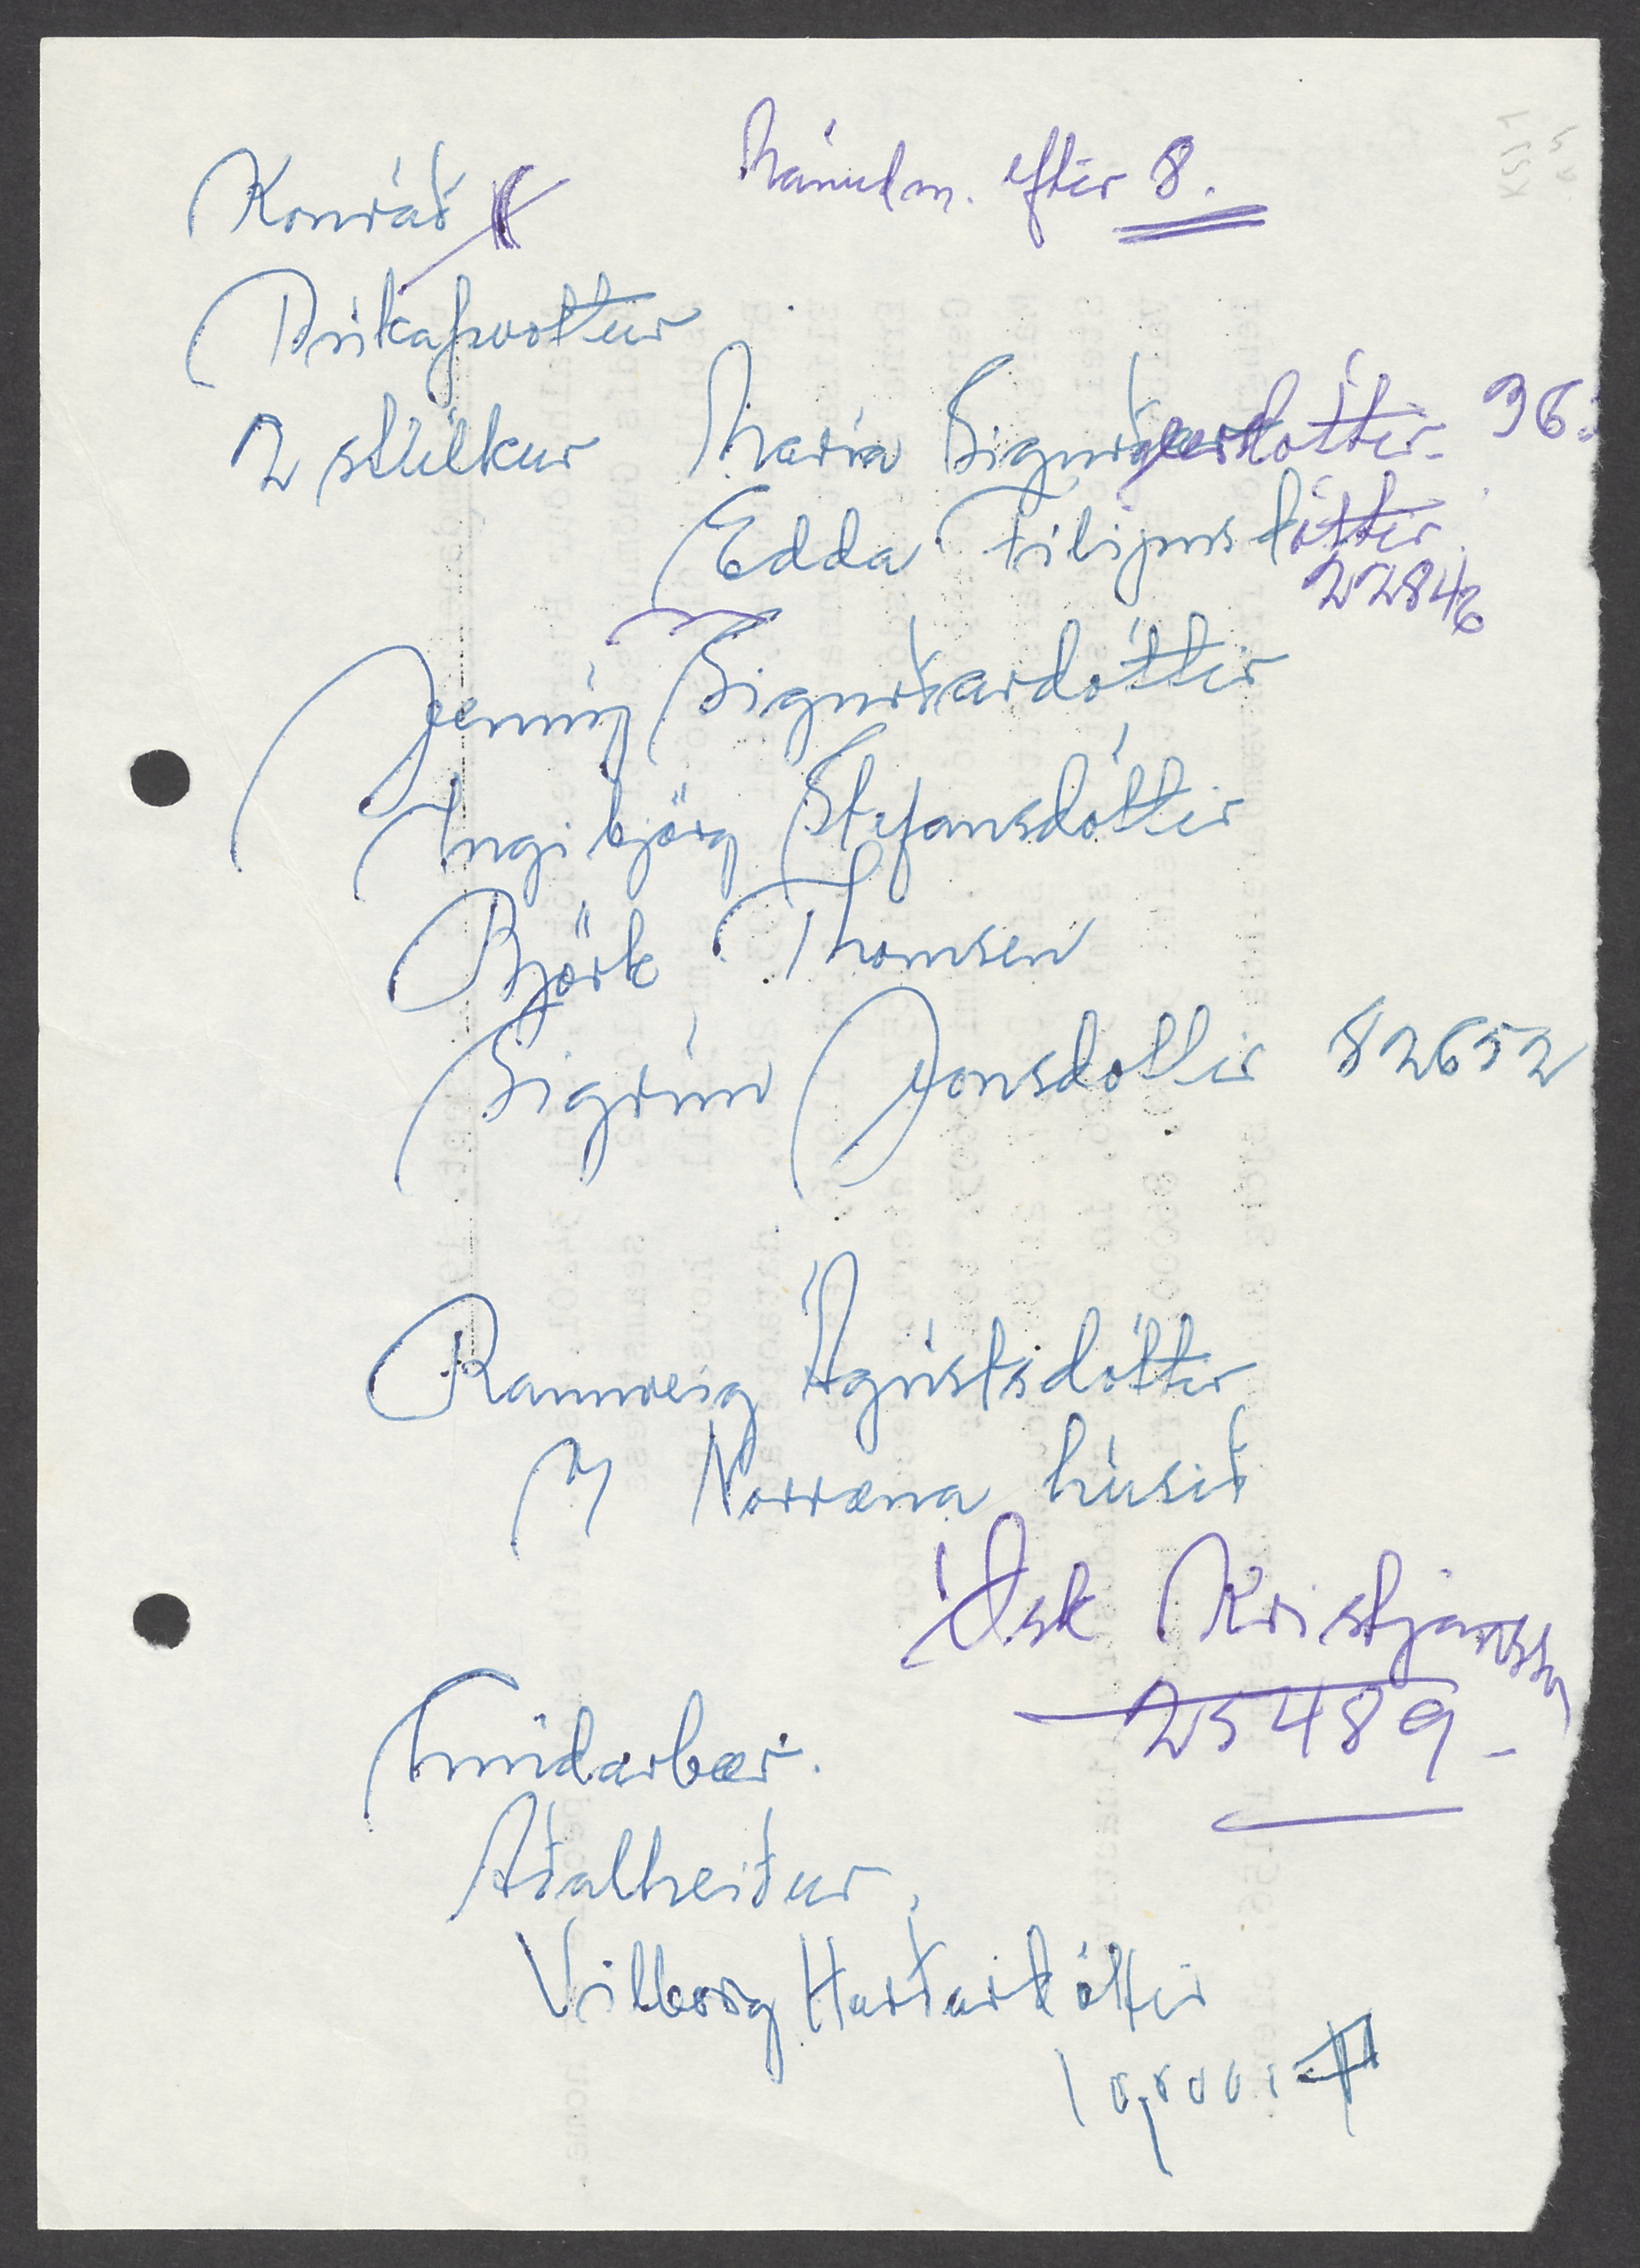 Konráð Mánud m. eftir 8.
Dúkaþvottur
2 stúlkur María Sigurðardóttir 36
Edda Filipusdóttir
22846
Jenný Sigurðardóttir
Ingibjörg Stefansdóttir
Björk Thomsen
Sigrún Jonsdottir 82652
Rannveig Ágústsdóttir
Norræna húsið
Ósk Kristjánss
25489
Fundarboð.
Aðalheiður
Vilborg Harðardóttir